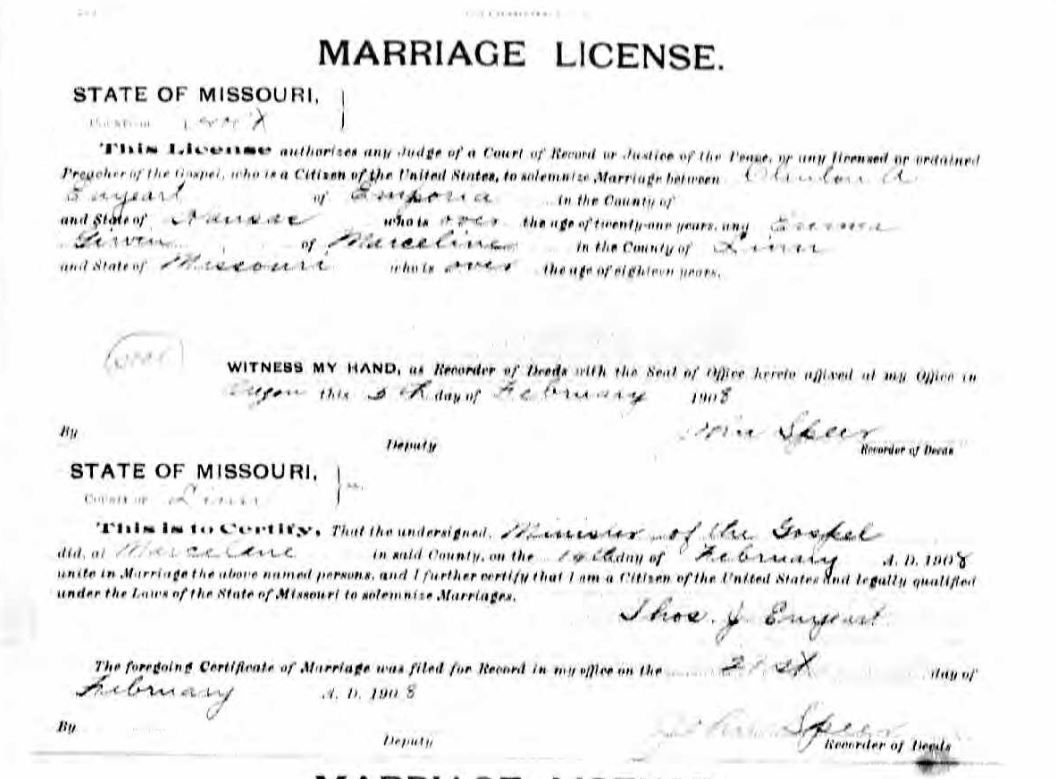 MARRIAGE LICENSE.
STATE OF MISSOURI,
This License authorizes any Judge of a Court of Record or Justice of the Peace, or any licensed or ordained
Preacher of the Gospel, who is a Citizen of the United States, to solemnize Marriage between Clinton A
Enyeart of Emporia in the County of
and State of Kansas who is over the age of twenty-one years, any Emma
Girvin of Marceline in the County of Linn
and State of Missouri who is over the age of eighteen years.
WITNESS MY HAND, as Recorder of Deeds with the Seal of Office hereto affixed at my Office in
this 5th day of February 1908
Speer
By Deputy Recorder of Deeds
STATE OF MISSOURI,
County of Linn
This is to Certify, That the undersigned, Minister of the Gospel
did, at Marcelane in said County, on the day of February A. D. 1908
unite in Marriage the above named persons, and I further certify that I am a Citizen of the United States and legally qualified
under the Laws of the State of Missouri to solemnize Marriages.
Thos. J Enyeart
The foregoing Certificate of Marriage was filed for Record in my office on the 21st day of
February A. D. 1908
By Deputy John Speer
Recorder of Deeds